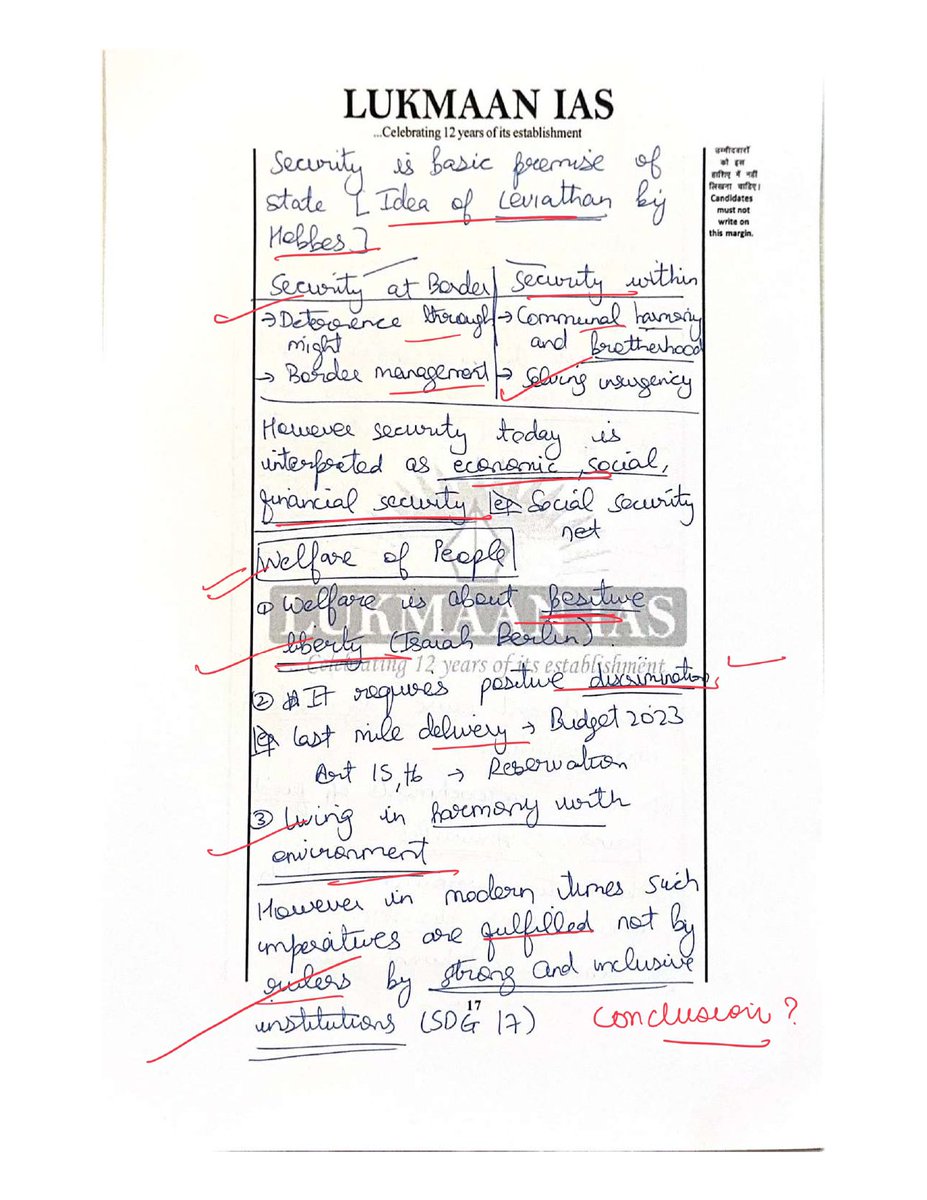 LUKMAAN IAS
...Celebrating 12 years of its establishment
उम्मीदवारों
को इस
हाशिए में नहीं
लिखना चाहिए।
Candidates
must not
write on
this margin.
Security is basic premise of
state [Idea of Leviathan by
Hobbes]
Security at Border | Security within
→ Deterrence through might | → Communal harmony and brotherhood
→ Border management | → Solving insurgency
However security today is
interpreted as economic, social,
financial security eg Social security
net
Welfare of People
① Welfare is about positive
liberty (Isaiah Berlin).
LUKMAAN IAS
...Celebrating 12 years of its establishment
② It requires positive discrimination,
eg last mile delivery → Budget 2023
Art 15, 16 → Reservation
③ Living in harmony with
environment
However in modern times such
imperatives are fulfilled not by
rulers by strong and inclusive
institutions (SDG 17)
17
Conclusion?